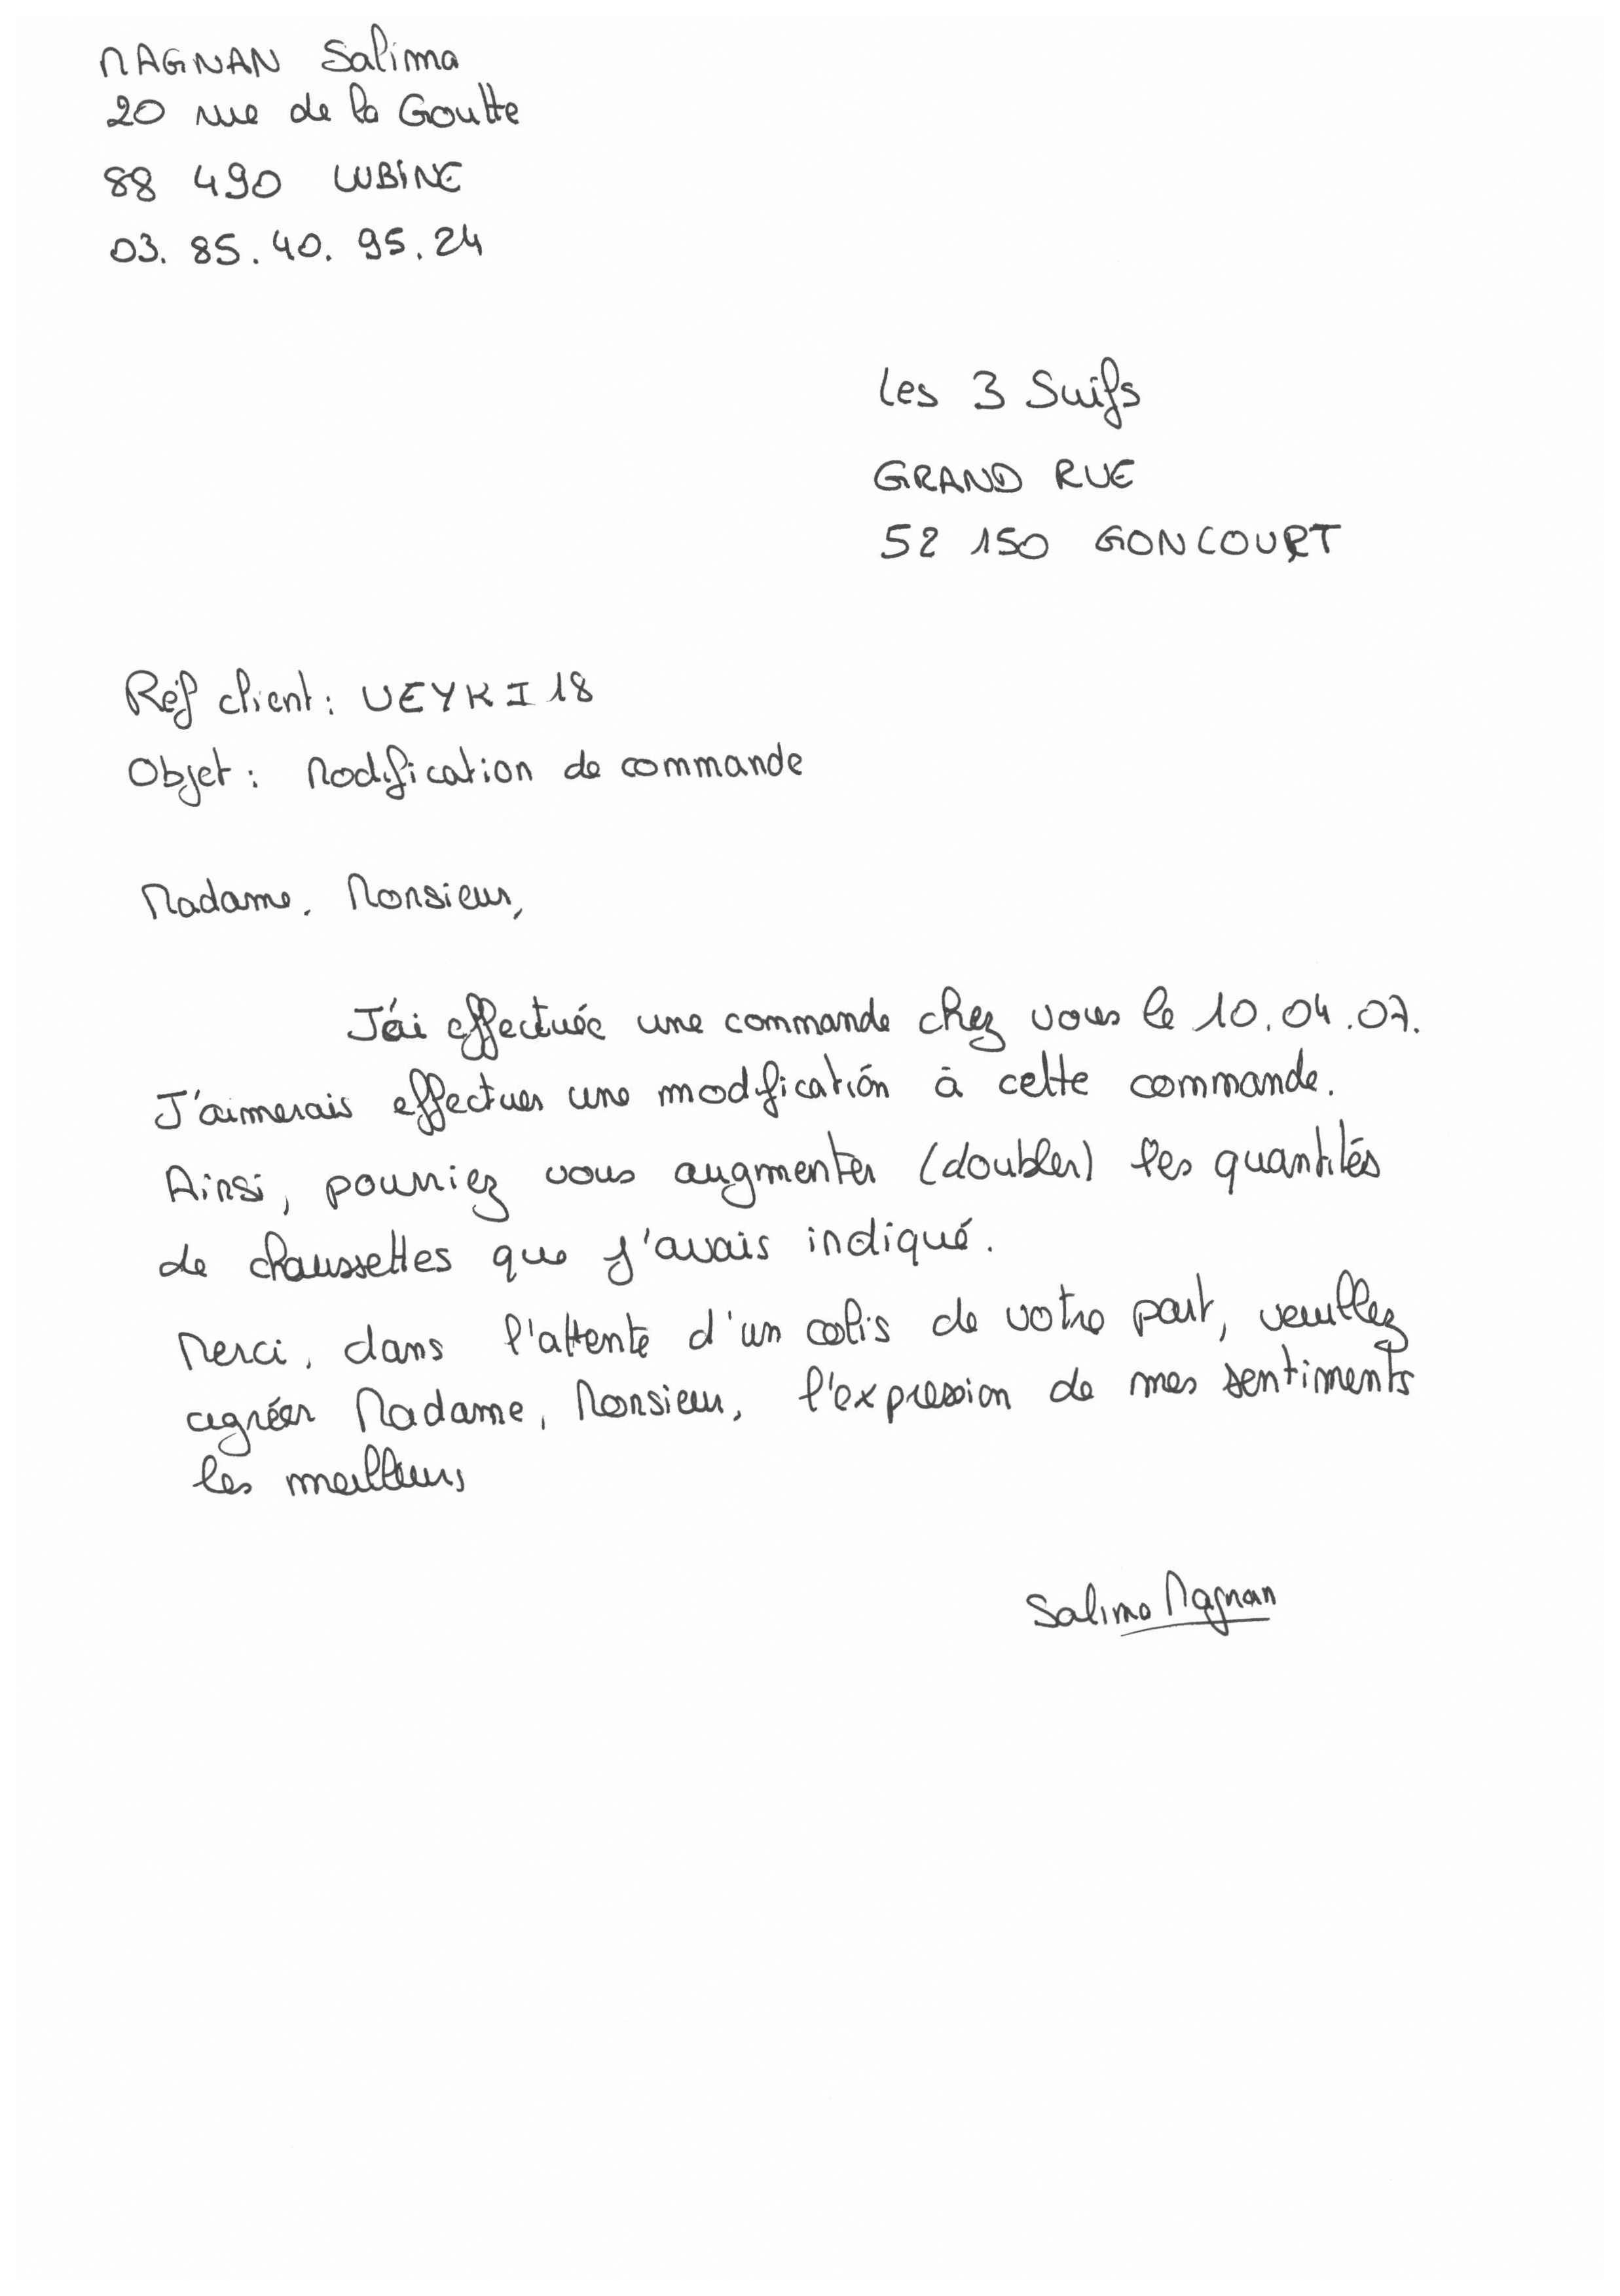 MAGNAN Salima
20 rue de la Goutte
88 490 LUBINE
03. 85. 40. 95. 24
Les 3 Suifs
GRAND RUE
52 150 GONCOURT
Réf client : UEYKI18
Objet : Modification de commande
Madame, Monsieur,
J'ai effectuée une commande chez vous le 10.04.07.
J'aimerais effectuer une modification à cette commande.
Ainsi, pourriez vous augmenter (doubler) les quantités
de chaussettes que j'avais indiqué.
Merci, dans l'attente d'un colis de votre part, veuillez
agréer Madame, Monsieur, l'expression de mes sentiments
les meilleurs
Salima Magnan